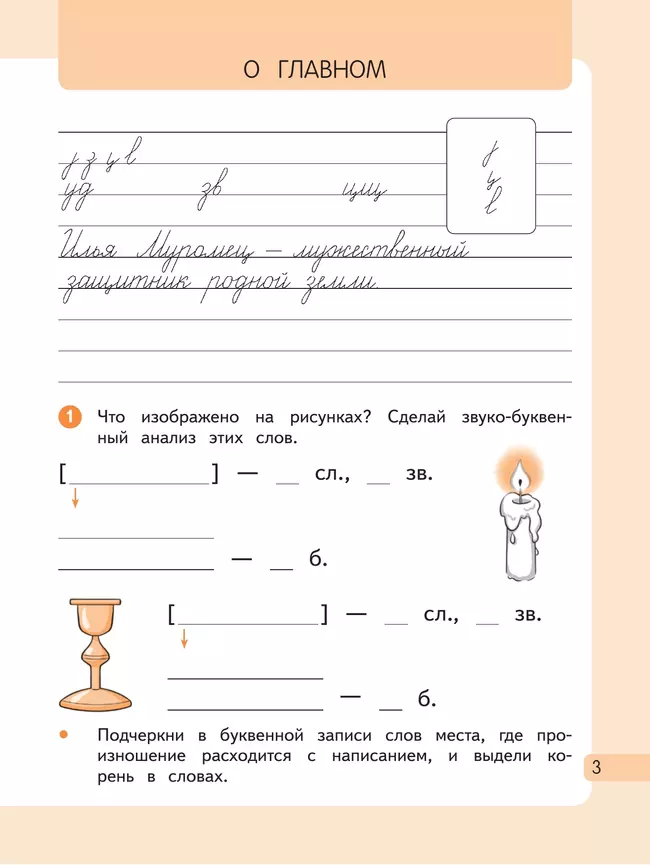 О ГЛАВНОМ
з з у в
уд зв ищ
з
у
в
Илья Муромец – мужественный
защитник родной земли.
1 Что изображено на рисунках? Сделай звуко-буквен-
ный анализ этих слов.
[ ] — __ сл., __ зв.
— __ б.
[ ] — __ сл., __ зв.
— __ б.
• Подчеркни в буквенной записи слов места, где про-
изношение расходится с написанием, и выдели ко-
рень в словах.
3